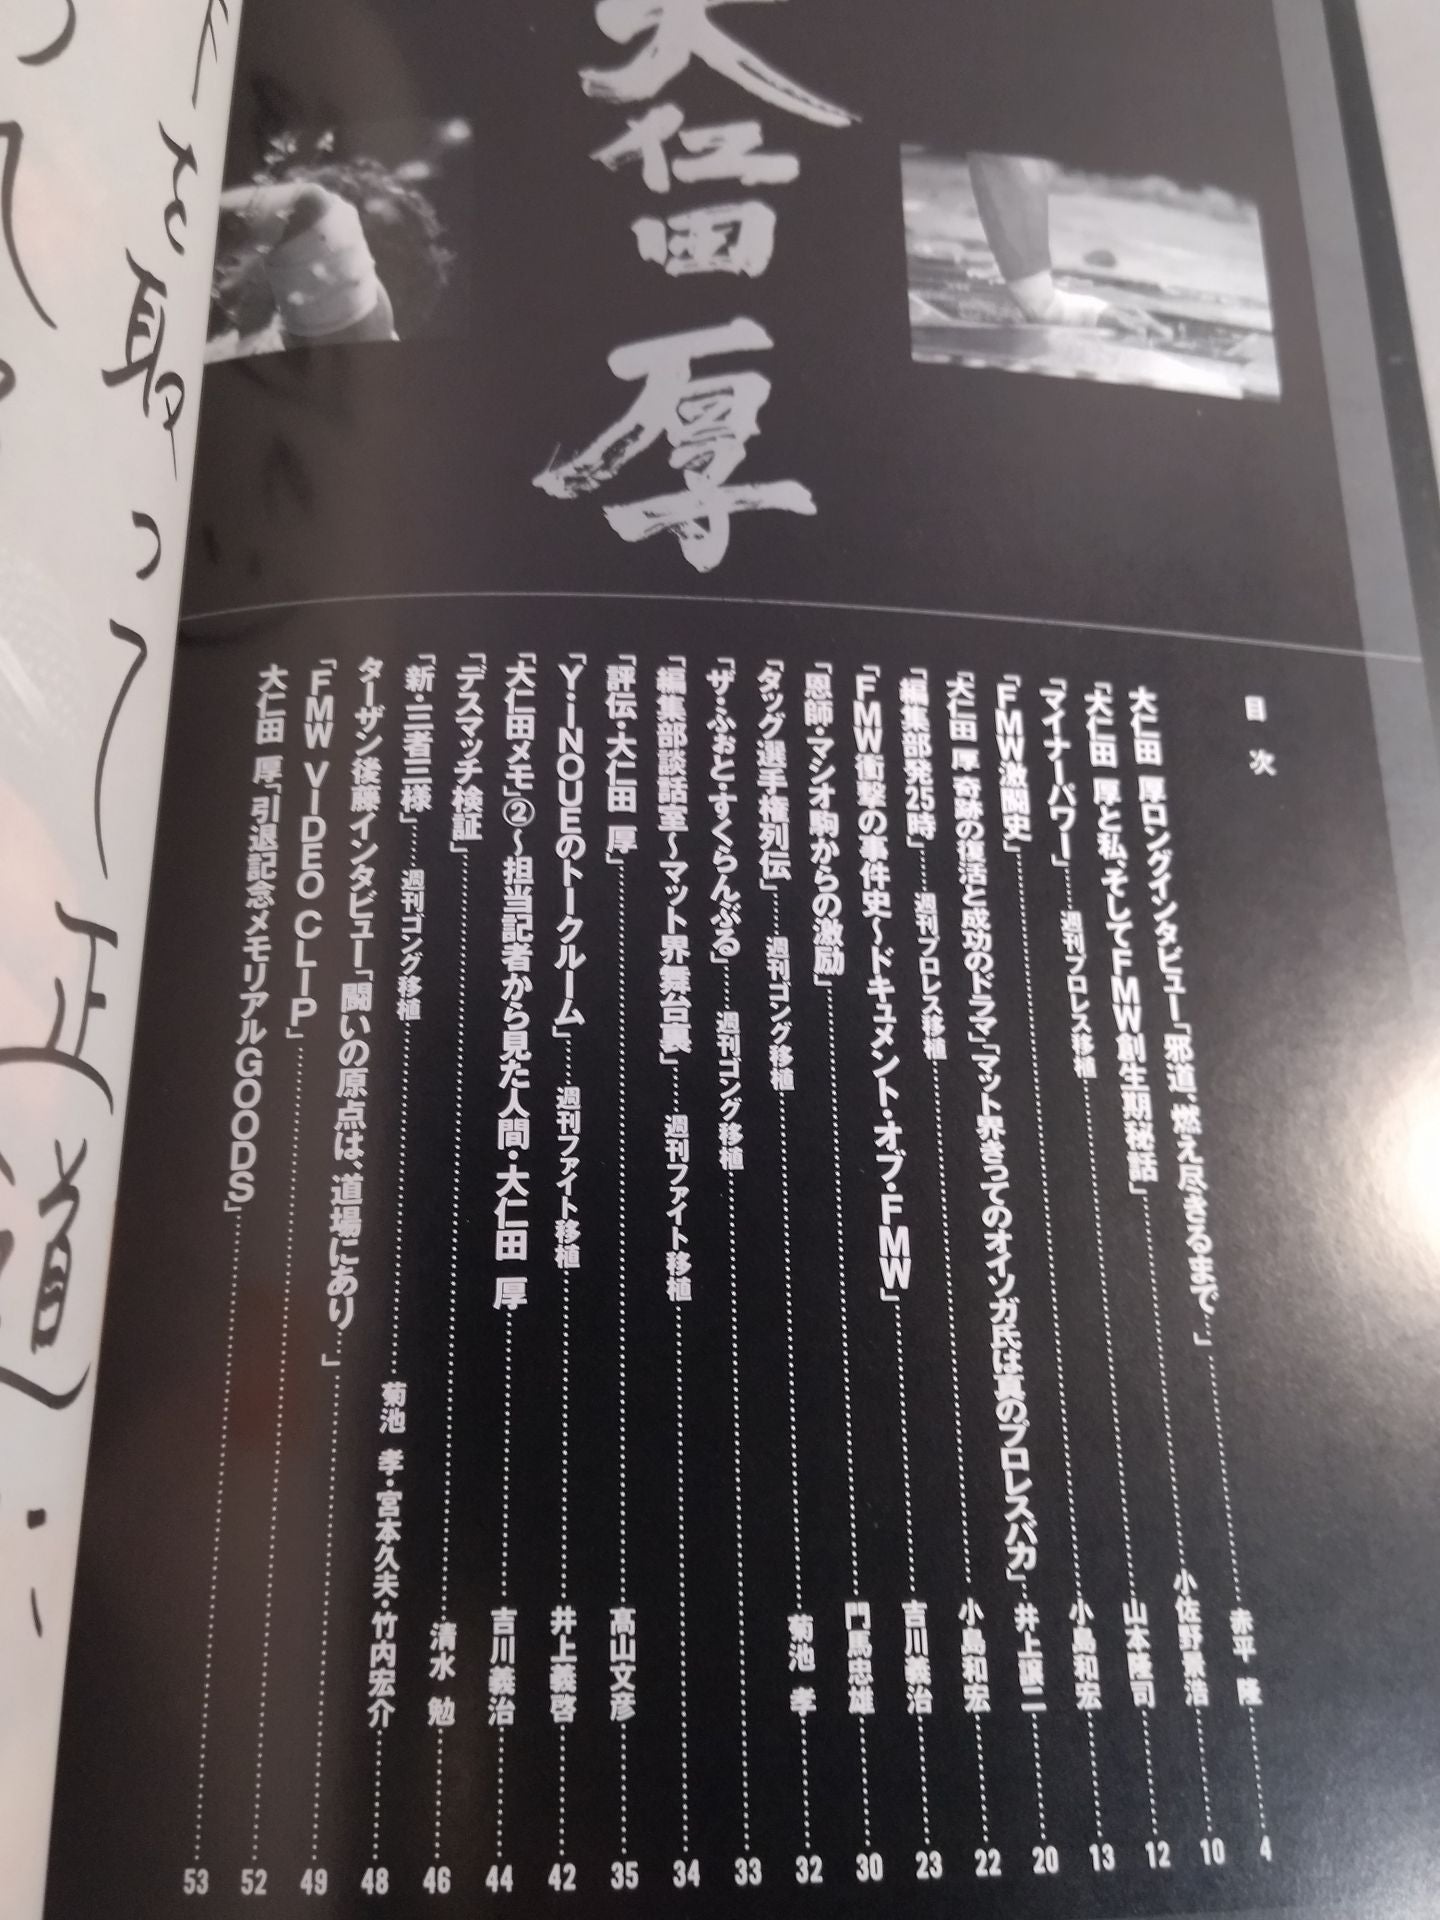 大仁田厚
目次
大仁田 厚ロングインタビュー「邪道、燃え尽きるまで…」……赤平 隆……4
「大仁田 厚と私、そしてFMW創生期秘話」……小佐野景浩……10
「マイナーパワー」……週刊プロレス移植……山本隆司……12
「FMW激闘史」……小島和宏……13
「大仁田 厚 奇跡の復活と成功のドラマ」「マット界きってのオイソガ氏は真のプロレスバカ」……井上譲二……20
「編集部発25時」……週刊プロレス移植……小島和宏……22
「FMW衝撃の事件史〜ドキュメント・オブ・FMW」……吉川義治……23
「恩師・マシオ駒からの激励」……門馬忠雄……30
「タッグ選手権列伝」……週刊ゴング移植……菊池 孝……32
「ザ・ふぉと・すくらんぶる」……週刊ゴング移植……33
「編集部談話室〜マット界舞台裏」……週刊ファイト移植……34
「評伝・大仁田 厚」……髙山文彦……35
「Y・INOUEのトークルーム」……週刊ファイト移植……井上義啓……42
「大仁田メモ」②〜担当記者から見た人間・大仁田 厚……吉川義治……44
「デスマッチ検証」……清水 勉……46
「新・三者三様」……週刊ゴング移植……菊池 孝・宮本久夫・竹内宏介……48
ターザン後藤インタビュー「闘いの原点は、道場にあり…」……49
「FMW VIDEO CLIP」……52
大仁田 厚「引退記念メモリアルGOODS」……53
を取って
正道